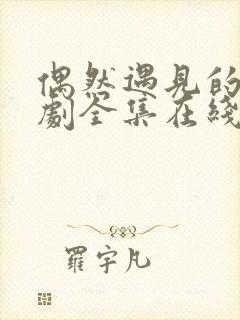 偶然遇见的
劇全集在綫
羅宇凡